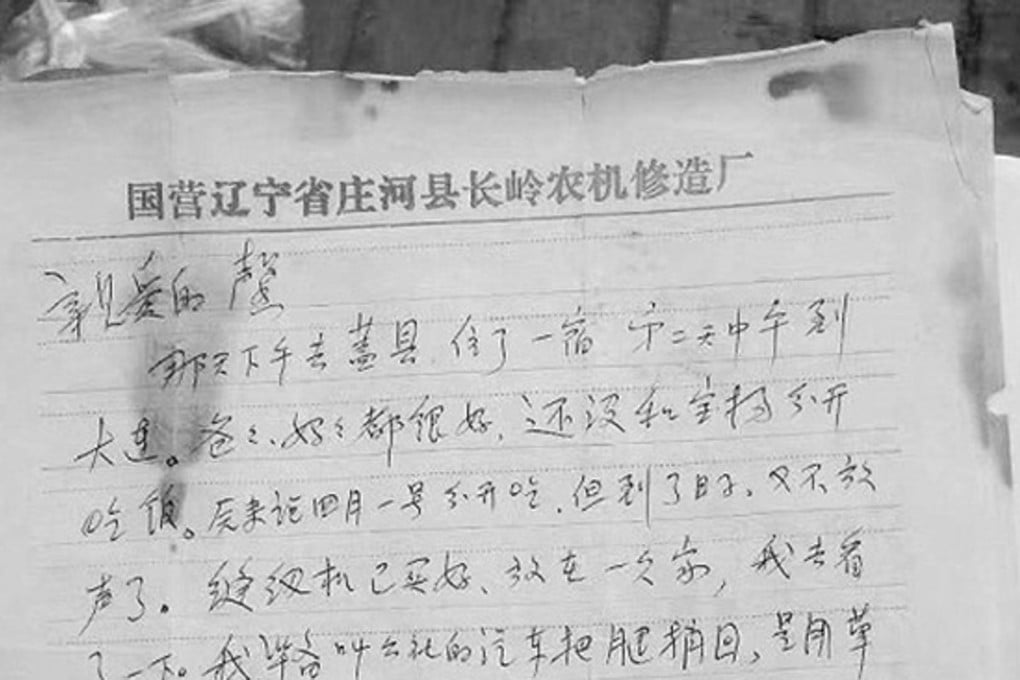 国营辽宁省庄河县长岭农机修造厂
亲爱的 馨
那天下午去盖县,住了一宿 第二天中午到
大连。爸々、妈々都很好,还没和宝杨分开
吃饭。原来说四月一号分开吃,但到了日子,又不放
声了。缝纫机已买好、放在一久家,我去看
了一下。我准备叫公社的汽车把腿捎回,是用草